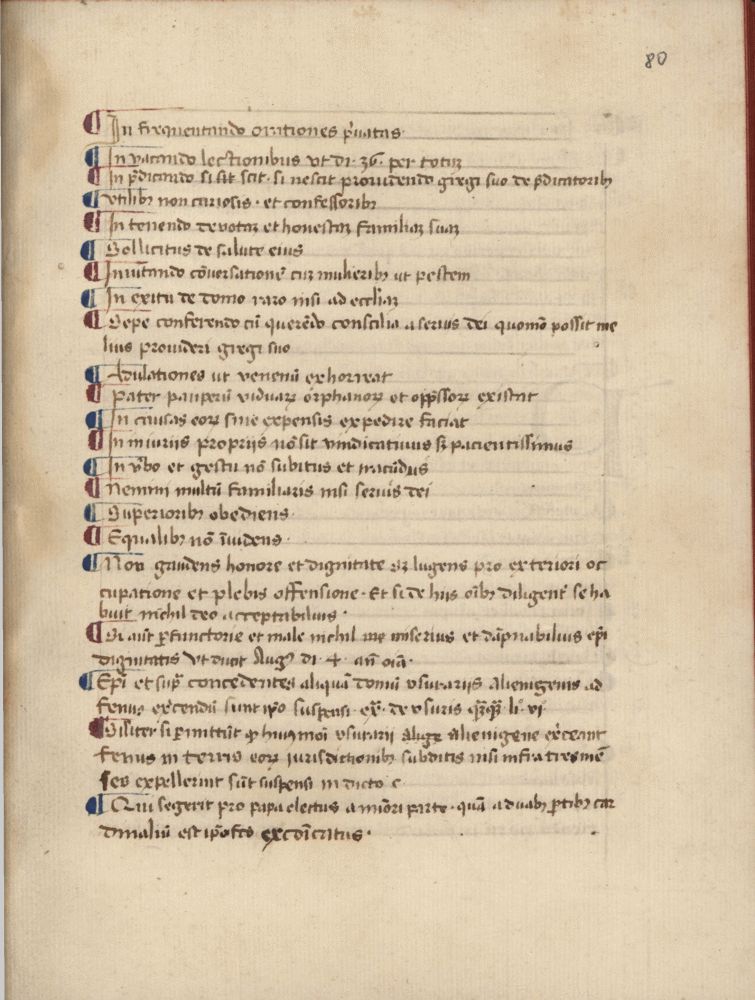 80
¶ In frequentando orationes p̄uatas.
¶ In vacando lectionibus vt di. 36. per totuȝ
¶ In p̄dicando si sit scit. si nescit prouidendo gregi suo de p̄dicatoribȝ
¶ vtilibȝ non curiosis. et confessoribȝ
¶ In tenendo deuotaȝ et honestaȝ familiaȝ suaȝ
¶ Sollicitus de salute eius
¶ In uitando cōuersationē cuȝ mulieribȝ ut pestem
¶ In exitu de domo raro nisi ad eccl̄iaȝ
¶ Sepe conferendo cū querēdo conscilia a seruis dei quomō possit me
lius prouideri gregi suo
¶ Adulationes ut venenū exhorreat
¶ Pater pauperū viduaꝝ orphanoꝝ et opp̄ssoꝝ existat
¶ In causas eoꝝ sine expensis expedire faciat
¶ In iniuriis proprijs nō sit vindicatiuus sȝ pacientissimus
¶ In v̄bo et gestu nō subitus et iracūdus
¶ Nemini multū familiaris nisi seruis dei
¶ Superioribȝ obediens.
¶ Equalibȝ nō īuidens.
¶ Non gaudens honore et dignitate sȝ lugens pro exteriori oc
cupatione et plebis offensione. Et si de hiis oībȝ diligent̄ se ha
buit nichil deo acceptabilius.
¶ Si aūt ꝑfunctorie et male nichil miserius et dāpnabilius ep̄i
dignitatis vt dicit Augꝰ di. 4. an̄ oīa.
¶ Ep̄i et sup̄ concedentes aliquā domū vsurariis alienigenis ad
fenus exercendū sunt ip̄o suspensi. ex̄. de vsuris li.º vi
¶ Silīter si ꝑmittūt ꝙ huiꝰmōi vsurarii alienigene ex̄ceant
fenus in terris eoꝝ iurisdictionibȝ subditis nisi infra tres mē
ses expellerint sūt suspensi in dicto c.
¶ Qui se gerit pro papa electus a miōri parte. quā a duabȝ ꝑtibȝ car
dinaliū est ip̄o fc̄o excōīcatus.